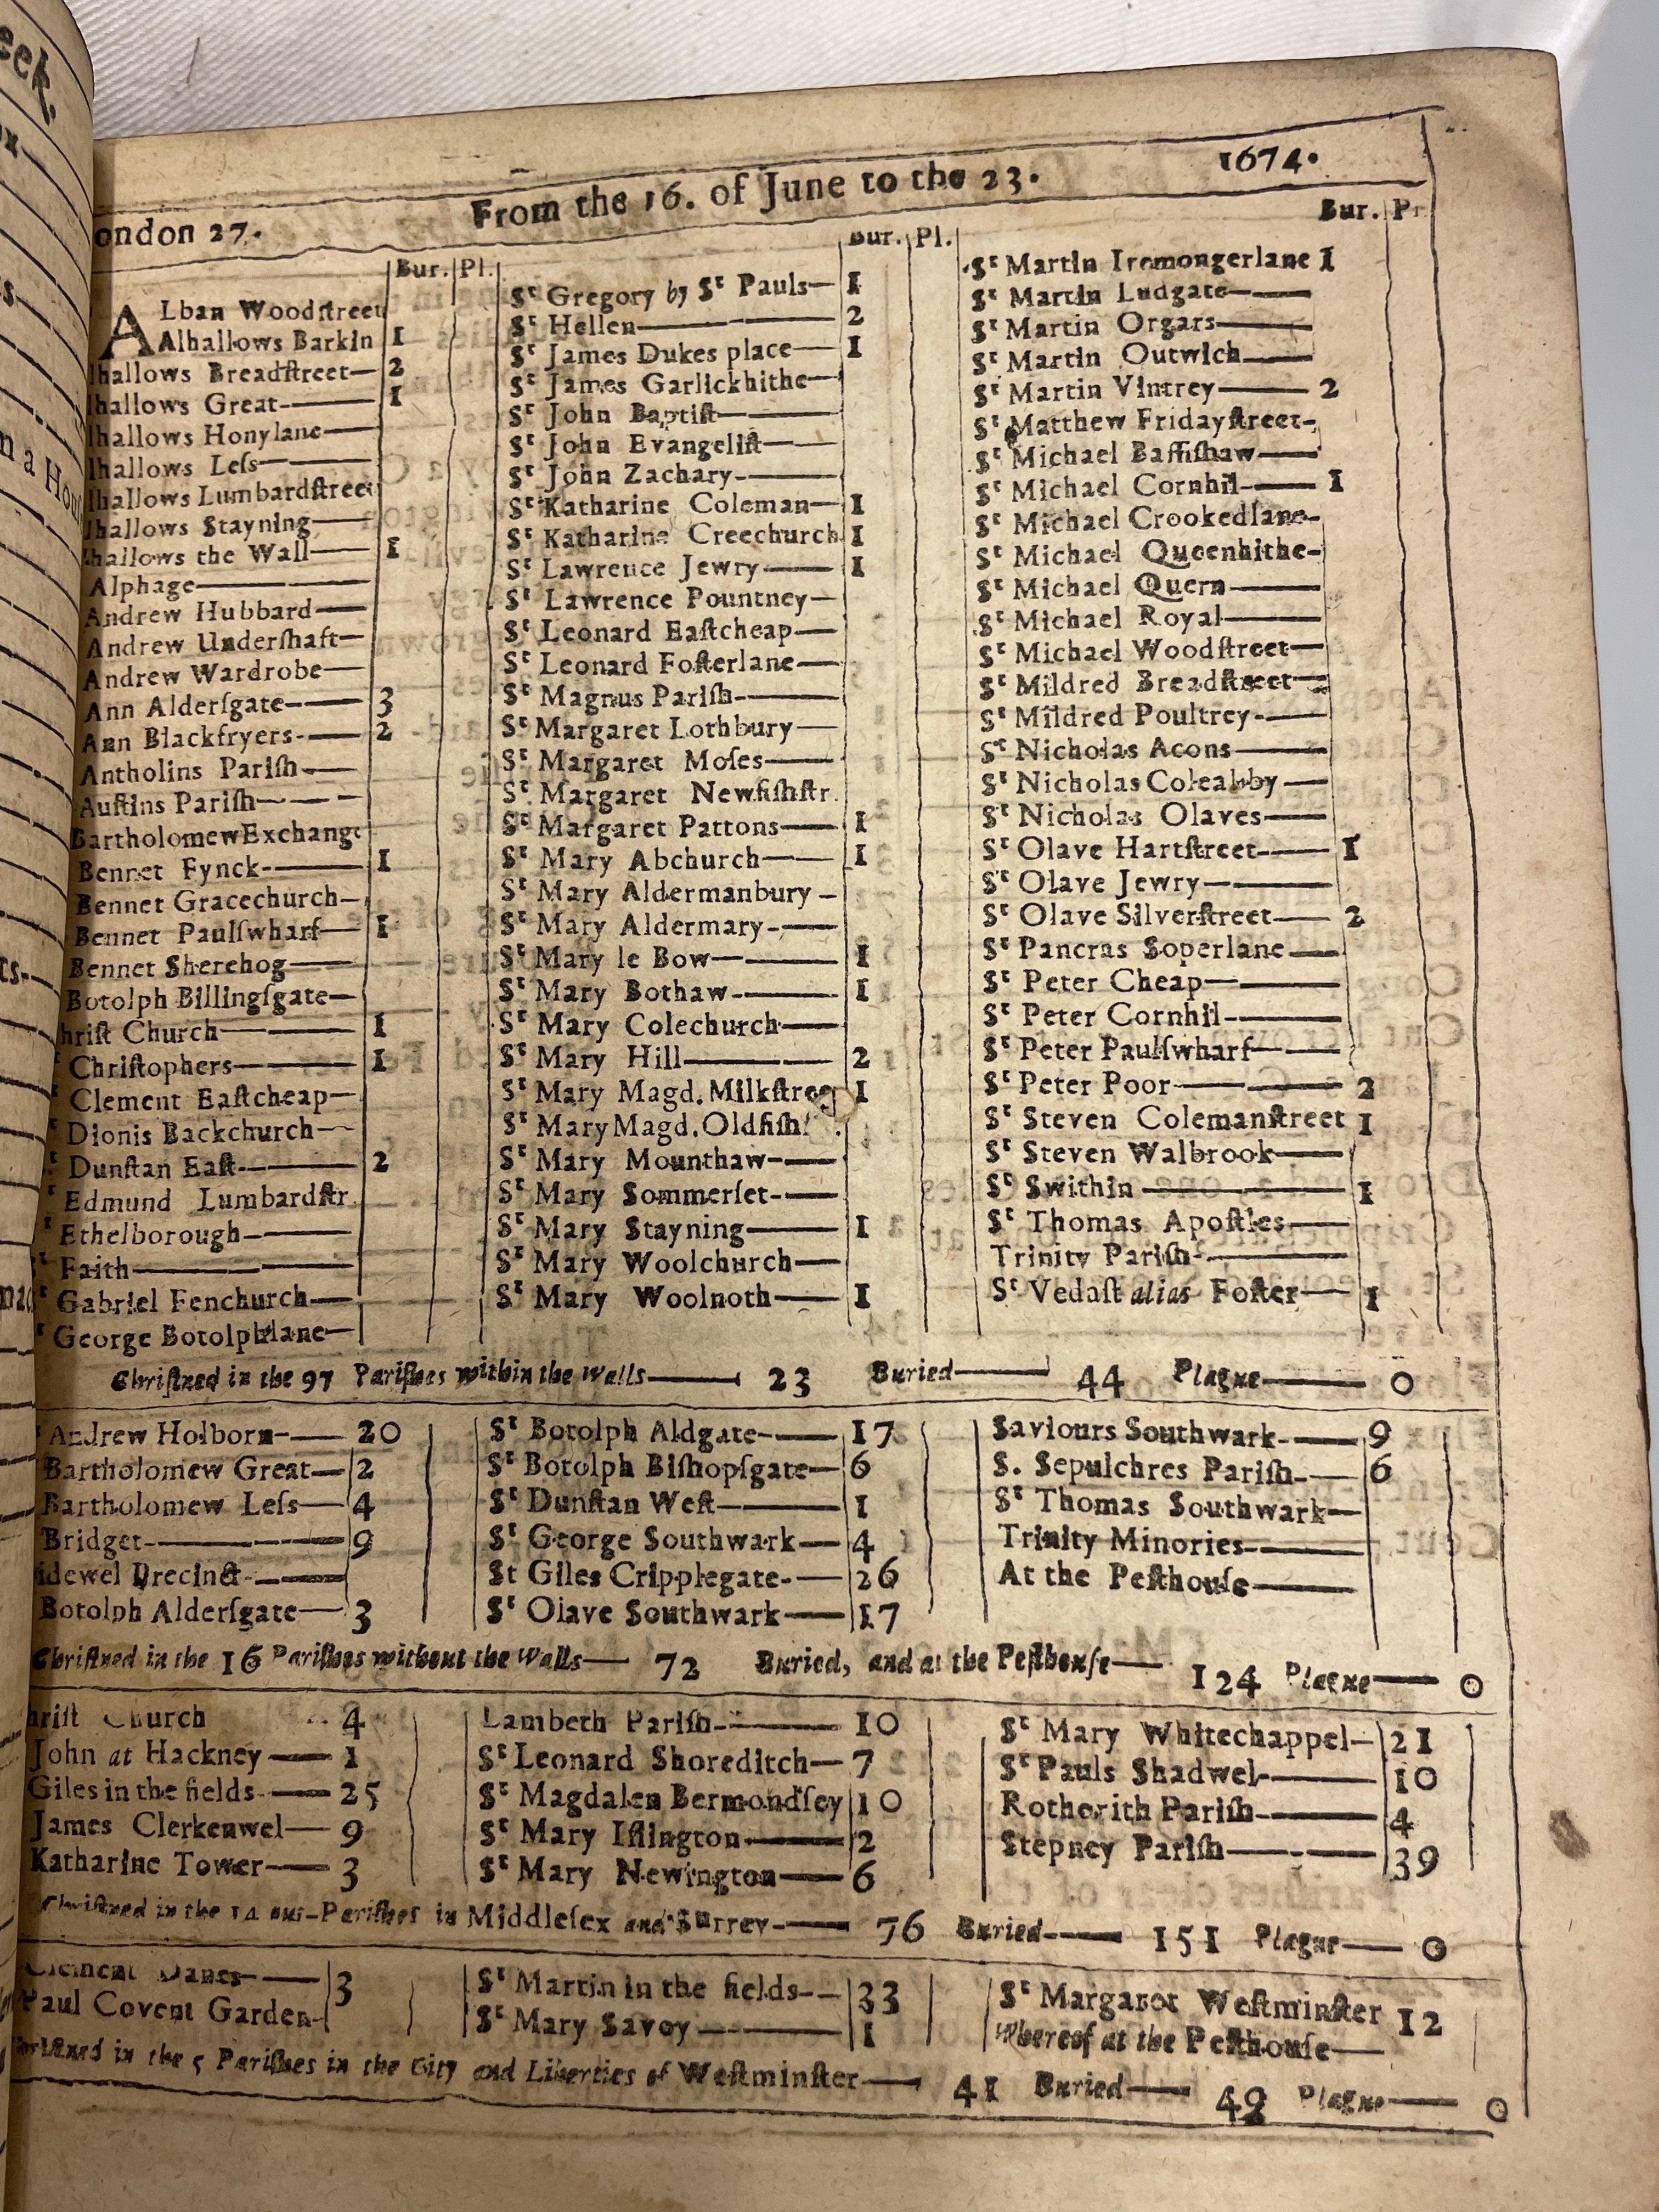 ondon 27. From the 16. of June to the 23. 1674.
Bur. Pl.
ALban Woodstreet
Alhallows Barkin 1
lhallows Breadstreet— 2
lhallows Great— 1
lhallows Honylane—
lhallows Less—
lhallows Lumbardstreet
lhallows Stayning—
hallows the Wall— 1
Alphage—
Andrew Hubbard—
Andrew Undershaft—
Andrew Wardrobe—
Ann Aldersgate— 3
Ann Blackfryers— 2
Antholins Parish—
Austins Parish—
BartholomewExchange
Bennet Fynck— 1
Bennet Gracechurch—
Bennet Paulswharf— 1
Bennet Sherehog—
Botolph Billingsgate—
hrist Church— 1
Christophers— 1
Clement Eastcheap—
Dionis Backchurch—
Dunstan East— 2
Edmund Lumbardstr.
Ethelborough—
Faith—
Gabriel Fenchurch—
George Botolphlane—
Bur. Pl.
St Gregory by St Pauls— 1
St Hellen— 2
St James Dukes place— 1
St James Garlickhithe—
St John Baptist—
St John Evangelist—
St John Zachary—
St Katharine Coleman— 1
St Katharine Creechurch 1
St Lawrence Jewry— 1
St Lawrence Pountney—
St Leonard Eastcheap—
St Leonard Fosterlane—
St Magnus Parish—
St Margaret Lothbury—
St Margaret Moses—
St Margaret Newfishstr.
St Margaret Pattons— 1
St Mary Abchurch— 1
St Mary Aldermanbury—
St Mary Aldermary—
St Mary le Bow— 1
St Mary Bothaw— 1
St Mary Colechurch—
St Mary Hill— 2
St Mary Magd. Milkstree 1
St Mary Magd. Oldfish
St Mary Mounthaw—
St Mary Sommerset—
St Mary Stayning— 1
St Mary Woolchurch—
St Mary Woolnoth— 1
Bur. Pl
St Martin Iremongerlane 1
St Martin Ludgate—
St Martin Orgars—
St Martin Outwich—
St Martin Vintrey— 2
St Matthew Fridaystreet—
St Michael Bassishaw—
St Michael Cornhil— 1
St Michael Crookedlane—
St Michael Queenhithe—
St Michael Quern—
St Michael Royal—
St Michael Woodstreet—
St Mildred Breadstreet—
St Mildred Poultrey—
St Nicholas Acons—
St Nicholas Coleabby—
St Nicholas Olaves—
St Olave Hartstreet— 1
St Olave Jewry—
St Olave Silverstreet— 2
St Pancras Soperlane—
St Peter Cheap—
St Peter Cornhil—
St Peter Paulswharf—
St Peter Poor— 2
St Steven Colemanstreet 1
St Steven Walbrook—
St Swithin— 1
St Thomas Apostles—
Trinity Parish—
St Vedast alias Foster— 1
Christned in the 97 Parishes within the Walls— 23 Buried— 44 Plague— 0
Andrew Holborn— 20
Bartholomew Great— 2
Bartholomew Less— 4
Bridget— 9
idewel Precinct—
Botolph Aldersgate— 3
St Botolph Aldgate— 17
St Botolph Bishopsgate— 6
St Dunstan West— 1
St George Southwark— 4
St Giles Cripplegate— 26
St Olave Southwark— 17
Saviours Southwark— 9
S. Sepulchres Parish— 6
St Thomas Southwark—
Trinity Minories—
At the Pesthouse—
Christned in the 16 Parishes without the Walls— 72 Buried, and at the Pesthouse— 124 Plague— 0
hrist Church 4
John at Hackney— 1
Giles in the fields— 25
James Clerkenwel— 9
Katharine Tower— 3
Lambeth Parish— 10
St Leonard Shoreditch— 7
St Magdalen Bermondsey 10
St Mary Islington— 2
St Mary Newington— 6
St Mary Whitechappel— 21
St Pauls Shadwel— 10
Rotherith Parish— 4
Stepney Parish— 39
Christned in the 14 out-Parishes in Middlesex and Surrey— 76 Buried— 151 Plague— 0
Clement Danes— 3
Paul Covent Garden—
St Martin in the fields— 33
St Mary Savoy— 1
St Margaret Westminster 12
Whereof at the Pesthouse—
ristned in the 5 Parishes in the City and Liberties of Westminster— 41 Buried— 49 Plague— 0